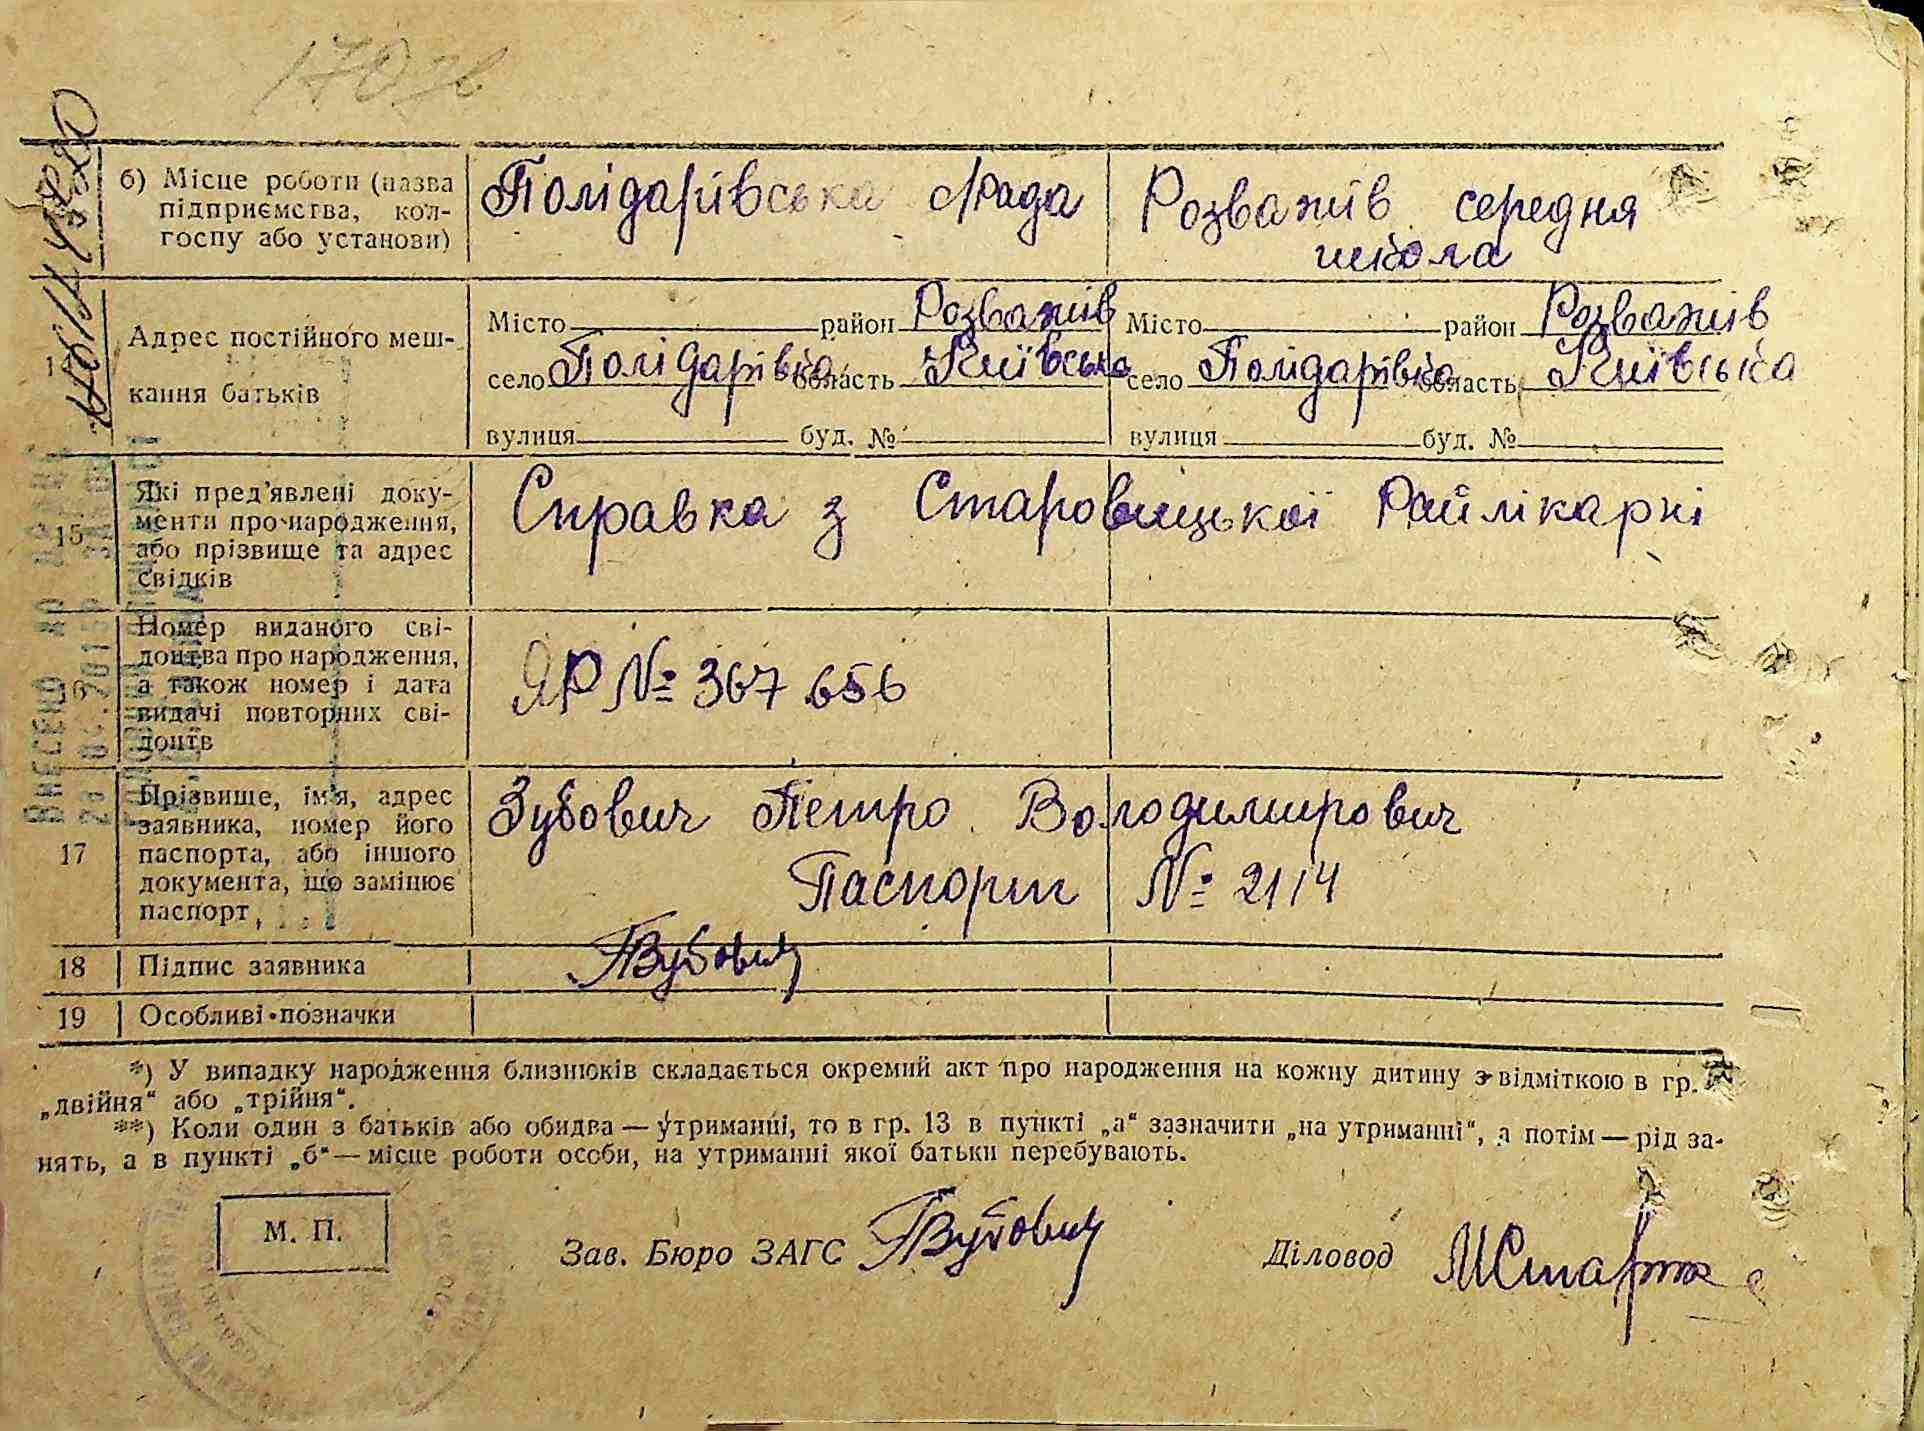 170 зв
б) Місце роботи (назва підприємства, колгоспу або установи)
Полідарівська Рада
Розважів середня школа
14 Адрес постійного мешкання батьків
Місто район Розважів
село Полідарівка область Київська
вулиця буд. №
Місто район Розважів
село Полідарівка область Київська
вулиця буд. №
15 Які пред'явлені документи про народження, або прізвище та адрес свідків
Справка з Старовицької Райлікарні
16 Номер виданого свідоцтва про народження, а також номер і дата видачі повторних свідоцтв
ЯР № 367656
17 Прізвище, ім'я, адрес заявника, номер його паспорта, або іншого документа, що замінює паспорт
Зубович Петро Володимирович
Паспорт № 2114
18 Підпис заявника
ПЗубович
19 Особливі позначки
*) У випадку народження близнюків складається окремий акт про народження на кожну дитину з відміткою в гр.
„двійня“ або „трійня“.
**) Коли один з батьків або обидва — утриманці, то в гр. 13 в пункті „а“ зазначити „на утриманні“, а потім — рід за-
нять, а в пункті „б“ — місце роботи особи, на утриманні якої батьки перебувають.
М. П.
Зав. Бюро ЗАГС ПЗубович
Діловод